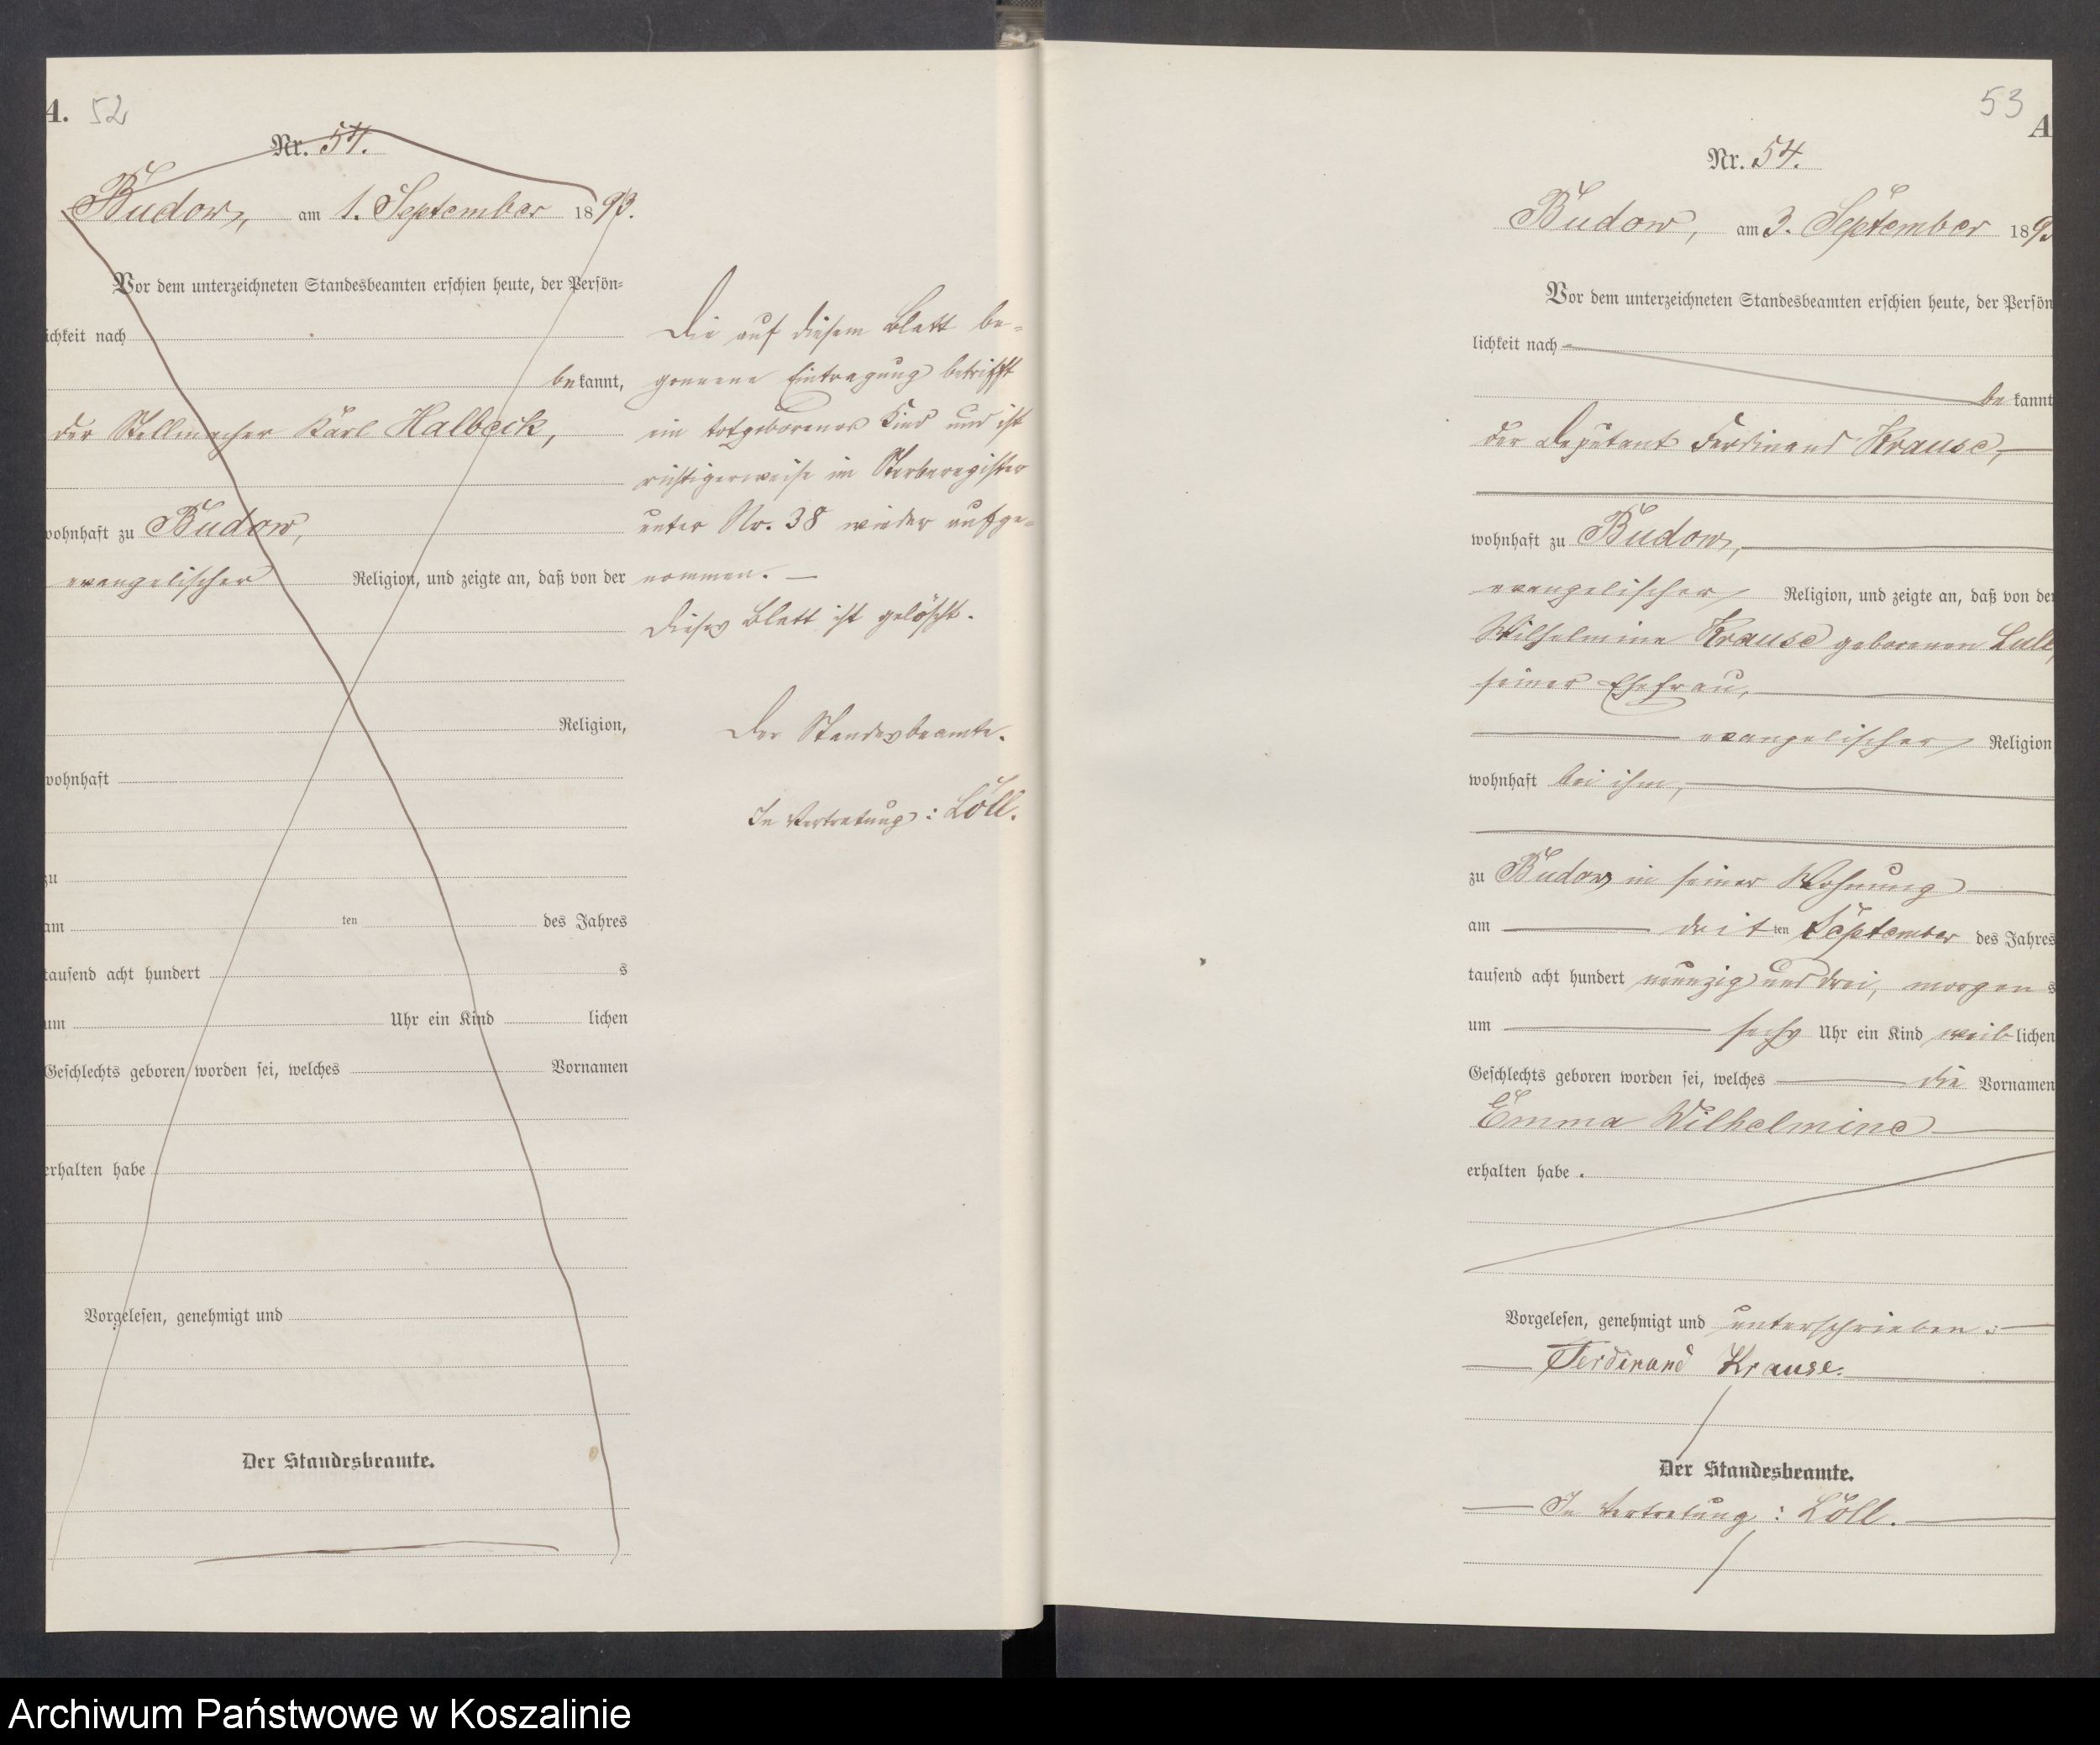 A. 52
Nr. 54.
Budow, am 1. September 1893.
Vor dem unterzeichneten Standesbeamten erschien heute, der Persön-
lichkeit nach
bekannt,
der Stellmacher Karl Halbeck,
wohnhaft zu Budow,
evangelischer Religion, und zeigte an, daß von der
Religion,
wohnhaft
zu
am ten des Jahres
tausend acht hundert s
um Uhr ein Kind lichen
Geschlechts geboren worden sei, welches Vornamen
erhalten habe
Vorgelesen, genehmigt und
Der Standesbeamte.
Die auf diesem Blatt be-
gonnene Eintragung betrifft
ein totgeborenes Kind und ist
richtigerweise im Sterberegister
unter No. 38 wieder aufge-
nommen. —
Dieses Blatt ist gelöscht.
Der Standesbeamte.
In Vertretung: Löll.
53
A
Nr. 54.
Budow, am 3. September 189
Vor dem unterzeichneten Standesbeamten erschien heute, der Persön
lichkeit nach
bekannt
der Deputant Ferdinand Krause,
wohnhaft zu Budow,
evangelischer Religion, und zeigte an, daß von der
Wilhelmine Krause geborenen
seiner Ehefrau,
evangelischer Religion
wohnhaft bei ihm,
zu Budow in seiner Wohnung
am dritten September des Jahres
tausend acht hundert neunzig und drei, morgens
um sechs Uhr ein Kind weiblichen
Geschlechts geboren worden sei, welches die Vornamen
Emma Wilhelmine
erhalten habe.
Vorgelesen, genehmigt und unterschrieben:
Ferdinand Krause.
Der Standesbeamte.
In Vertretung: Löll.
Archiwum Państwowe w Koszalinie